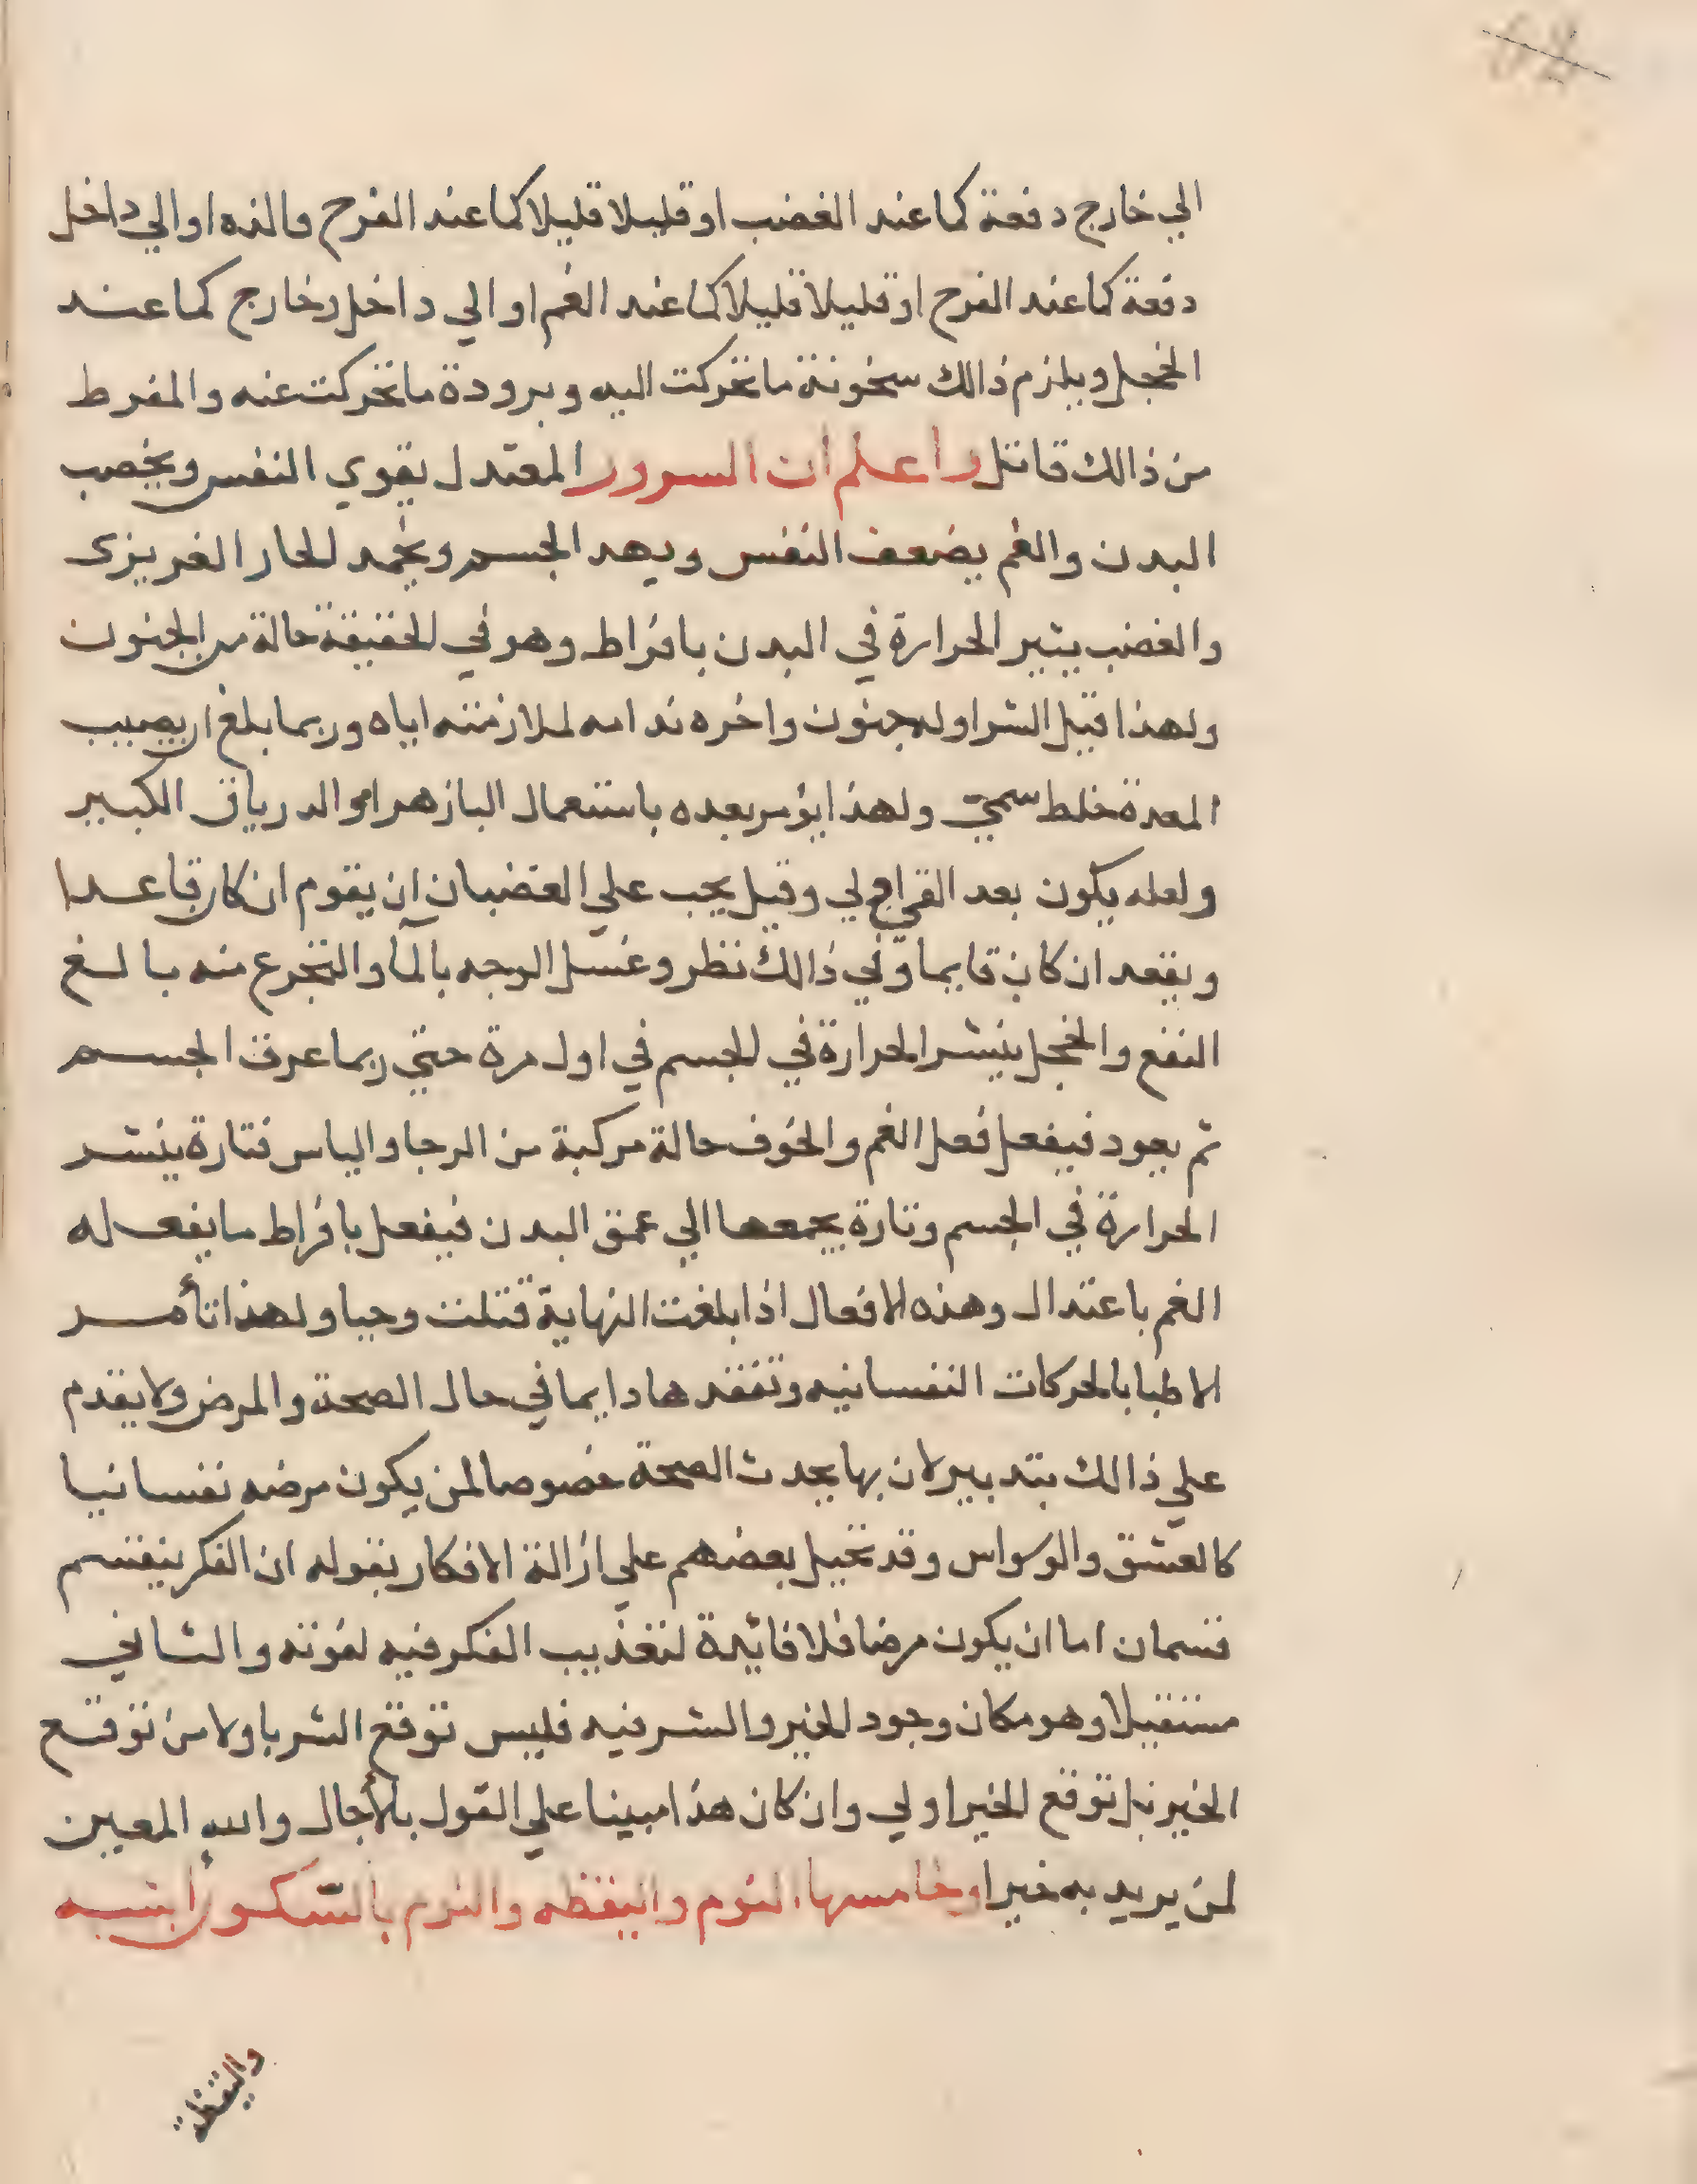 الي خارج دفعة كما عند الغضب او قليلا قليلا كما عند الفرح والذه او الي داخل
دفعة كما عند الفرح او قليلا قليلا كما عند الغم او الي داخل وخارج كما عند
الخجل ويلزم ذالك سخونة ما تحركت اليه وبرودة ما تحركت عنه والمفرط
من ذالك قاتل واعلم ان السرور المعتدل يقوي النفس ويخصب
البدن والغم يضعف النفس ويهد الجسم ويخمد الحار الغريزى
والغضب يثير الحرارة في البدن بافراط وهو في الحقيقة حالة من الجنون
ولهذا قيل الشر اوله جنون واخره ندامه لملازمته اياه وربما بلغ ان يصيب
المعدة خلط سمي ولهذا يؤمر بعده باستعمال البازهر او الدرياق الكبير
ولعله يكون بعد القي وقيل يجب علي الغضبان ان يقوم ان كان قاعدا
ويقعد ان كان قايما وفي ذالك نظر وغسل الوجه بالمآ والتجرع منه بالغ
النفع والخجل ينشر الحرارة في الجسم في اول مرة حتي ربما عرق الجسم
ثم يعود فيفعل فعل الغم والخوف حالة مركبة من الرجا والياس فتارة ينشر
الحرارة في الجسم وتارة يجمعها الي عمق البدن فيفعل بافراط ما يفعله
الغم باعتدال وهذه الافعال اذا بلغت النهاية قتلت وحيا ولهذا تأمر
الاطبا بالحركات النفسانيه وتفقدها دايما في حال الصحة والمرض ولا يقدم
علي ذالك بتدبير لان بها يحدث الصحة خصوصا لمن يكون مرضه نفسانيا
كالعشق والوسواس وقد تحيل بعضهم علي ازالة الافكار بقوله ان الفكر ينقسم
قسمان اما ان يكون مرضا فلا فائدة لتعذيب الفكر فيه لفوته والثاني
مستقبلا وهو مكان وجود الخير والشر فيه فليس توقع الشر باولا من توقع
الخير بل توقع الخير اولي وان كان هذا مبينا علي القول بالأجال والله المعين
لمن يريد به خيرا وخامسها النوم واليقظه والنوم بالسكون اشبه
واليقظة